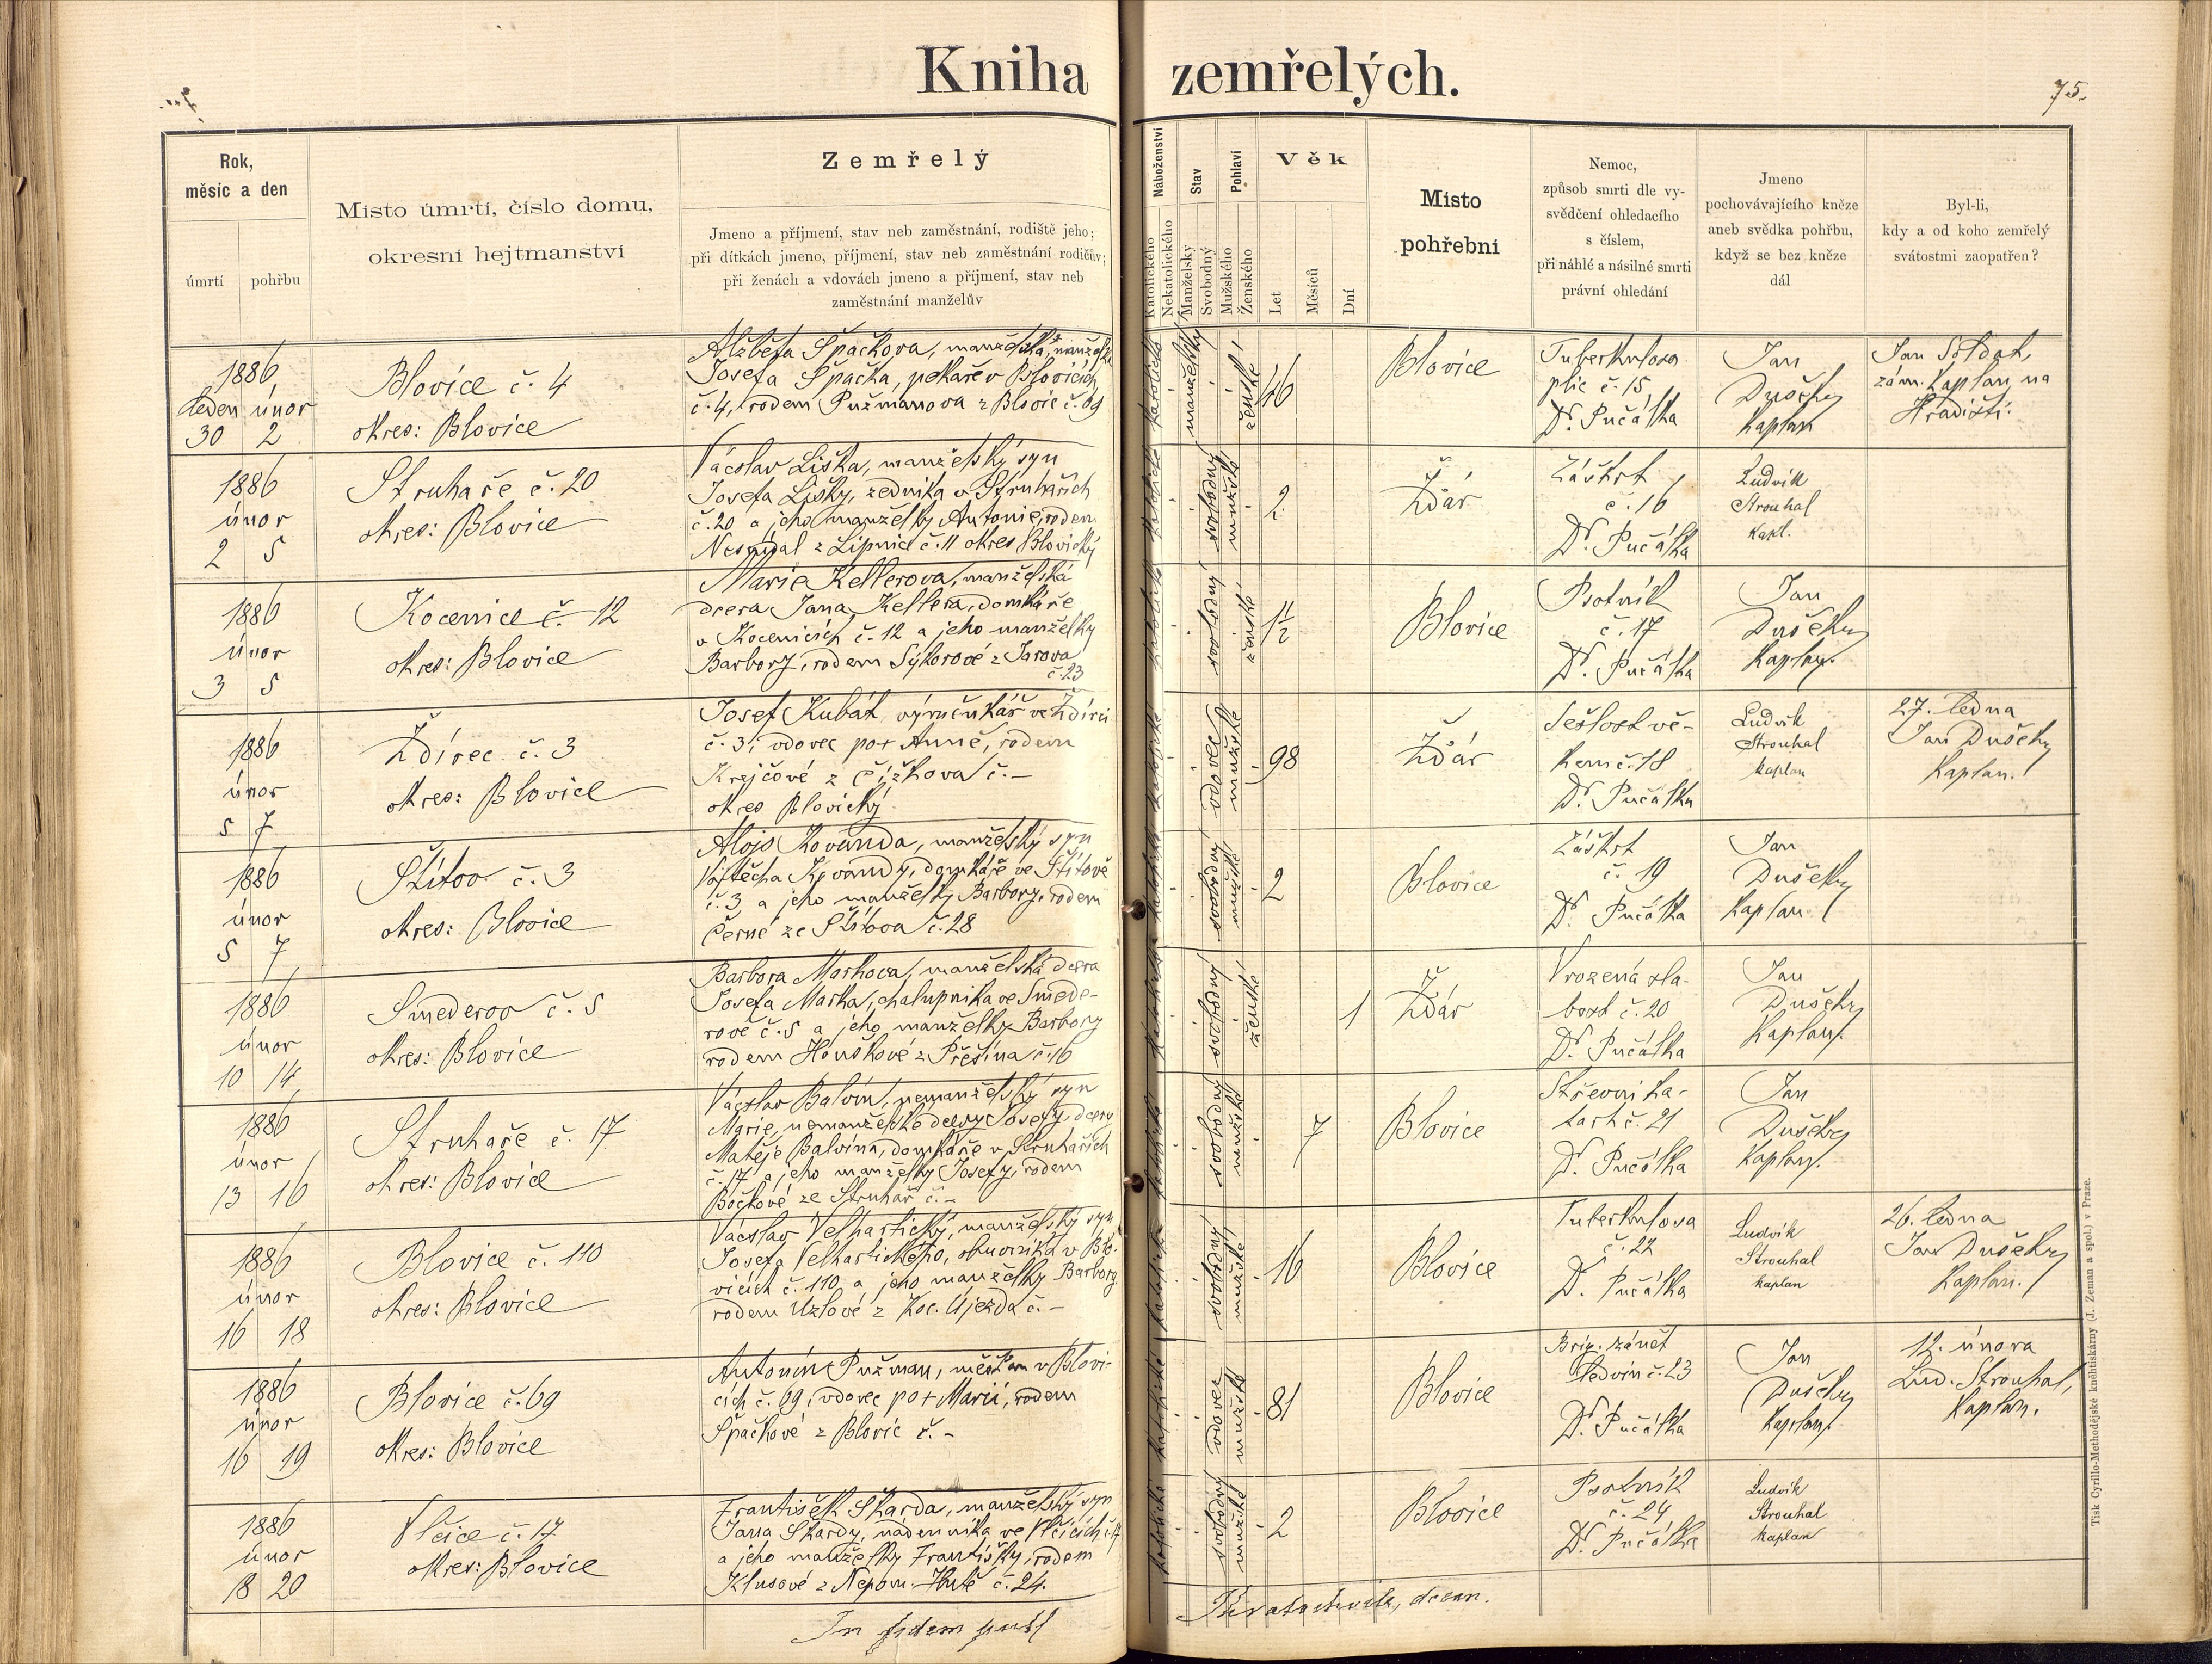 Kniha zemřelých.
75.
Rok,
měsíc a den
úmrtí
pohřbu
Místo úmrtí, číslo domu,
okresní hejtmanství
Zemřelý
Jmeno a příjmení, stav neb zaměstnání, rodiště jeho;
při dítkách jmeno, příjmení, stav neb zaměstnání rodičův;
při ženách a vdovách jmeno a příjmení, stav neb
zaměstnání manželův
Náboženství
Katolického
Nekatolického
Stav
Manželský
Svobodný
Pohlaví
Mužského
Ženského
Věk
Let
Měsíců
Dní
Místo
pohřební
Nemoc,
způsob smrti dle vy-
svědčení ohledacího
s číslem,
při náhlé a násilné smrti
právní ohledání
Jmeno
pochovávajícího kněze
aneb svědka pohřbu,
když se bez kněze
dál
Byl-li,
kdy a od koho zemřelý
svátostmi zaopatřen?
1886
leden únor
30 2
Blovice č. 4
okres: Blovice
Alžběta Špačkova, manželská, manželka
Josefa Špačka, pekaře v Blovicích
č. 4, rodem Pužmanova z Blovic č. 69
katolické
manželský
ženské
46
Blovice
Tuberkulosa
plic č. 15
Dr. Pučálka
Jan
Dušek
kaplan
Jan Soldat,
zám. kaplan na
Hradišti.
1886
únor
2 5
Struhaře č. 20
okres: Blovice
Václav Liška, manželský syn
Josefa Lišky, zedníka v Struhařích
č. 20 a jeho manželky Antonie, rodem
Nesnídal z Lipnice č. 11 okres Blovický
katolické
svobodný
mužské
2
Ždár
Záškrt
č. 16
Dr. Pučálka
Ludvík
Strouhal
kapl.
1886
únor
3 5
Kocenice č. 12
okres: Blovice
Marie Kellerova, manželská
dcera Jana Kellera, domkáře
v Kocenicích č. 12 a jeho manželky
Barbory, rodem Sýkorové z Jarova
č. 23
katolické
svobodný
ženské
1½
Blovice
Psotník
č. 17
Dr. Pučálka
Jan
Dušek
kaplan.
1886
únor
5 7
Ždírec č. 3
okres: Blovice
Josef Kubát, výměnkář ve Ždírci
č. 3, vdovec po + Anně, rodem
Krejčové z Čížkova č. –
okres Blovický
katolické
vdovec
mužské
98
Ždár
Sešlost vě-
kem č. 18
Dr. Pučálka
Ludvík
Strouhal
kaplan
27. ledna
Jan Dušek
kaplan.
1886
únor
5 7
Štítov č. 3
okres: Blovice
Alojs Kovanda, manželský syn
Vojtěcha Kovandy, domkáře ve Štítově
č. 3 a jeho manželky Barbory, rodem
Černé ze Štítova č. 28
katolické
svobodný
mužské
2
Blovice
Záškrt
č. 19
Dr. Pučálka
Jan
Dušek
kaplan
1886
únor
10 14
Smederov č. 5
okres: Blovice
Barbora Markova, manželská dcera
Josefa Marka, chalupníka ve Smede-
rově č. 5 a jeho manželky Barbory
rodem Houškové z Přešína č. 16
katolické
svobodný
ženské
1
Ždár
Vrozená sla-
bost č. 20
Dr. Pučálka
Jan
Dušek
kaplan.
1886
únor
13 16
Struhaře č. 17
okres: Blovice
Václav Balvín, nemanželský syn
Marie, nemanželské dcery Josefy, dcery
Matěje Balvína, domkáře v Struhařích
č. 17 a jeho manželky Josefy, rodem
Bočkové ze Struhař č. –
katolické
svobodný
mužské
7
Blovice
Střevní ka-
tarh č. 21
Dr. Pučálka
Jan
Dušek
kaplan.
1886
únor
16 18
Blovice č. 110
okres: Blovice
Václav Velhartický, manželský syn
Josefa Velhartického, obuvníka v Blo-
vicích č. 110 a jeho manželky Barbory
rodem Uzlové z Koc. Újezda č. –
katolické
svobodný
mužské
16
Blovice
Tuberkulosa
č. 22
Dr. Pučálka
Ludvík
Strouhal
kaplan
26. ledna
Jan Dušek
kaplan.
1886
únor
16 19
Blovice č. 69
okres: Blovice
Antonín Pužman, měšťan v Blovi-
cích č. 69, vdovec po + Marii, rodem
Špačkové z Blovic č. –
katolické
vdovec
mužské
81
Blovice
Brig. zánět
ledvin č. 23
Dr. Pučálka
Jan
Dušek
kaplan
12. února
Lud. Strouhal,
kaplan.
1886
únor
18 20
Vlčice č. 17
okres: Blovice
František Skarda, manželský syn
Jana Skardy, nádenníka ve Vlčicích č. 17
a jeho manželky Františky, rodem
Klusové z Nepom. Hutě č. 24.
katolické
svobodný
mužské
2
Blovice
Psotník
č. 24
Dr. Pučálka
Ludvík
Strouhal
kaplan
In fidem publ
decan.
Tisk Cyrillo-Methodějské kněhtiskárny (J. Zeman a spol.) v Praze.